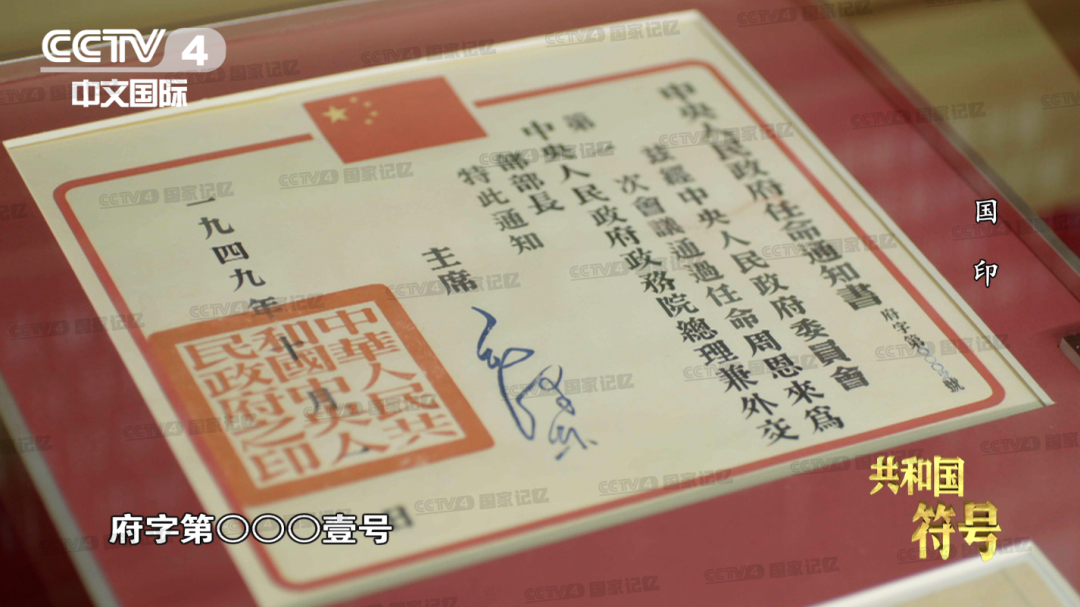 CCTV 4
中文国际
中央人民政府任命通知書
府字第〇〇〇壹號
茲經中央人民政府委員會
第一次會議通過任命周恩來為
中央人民政府政務院總理兼外交
部部長
特此通知
主席
一九四九年十月一日
中華人民共
和國中央人
民政府之印
国印
共和国
符号
府字第〇〇〇壹号
CCTV4 国家记忆